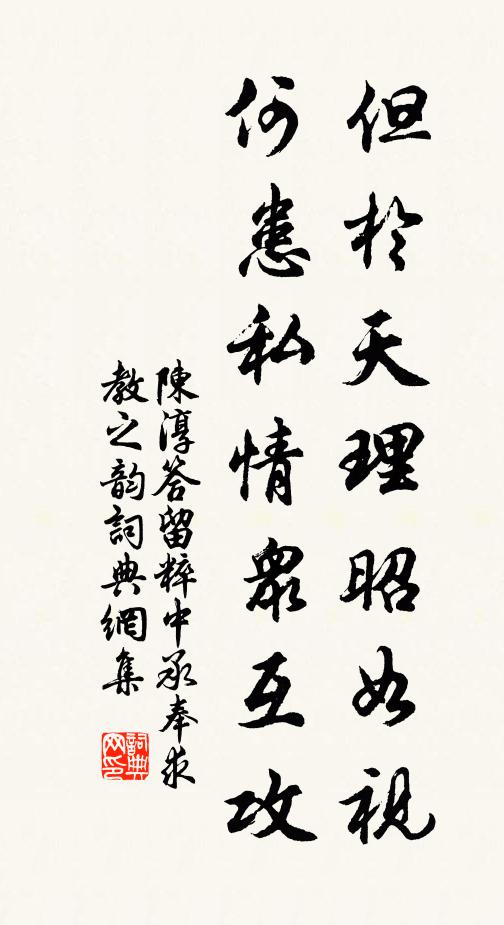 但於天理昭如視
何患私情衆互攻
陳淳答留粹中承奉求
教之韵詞典網集
詞典網印